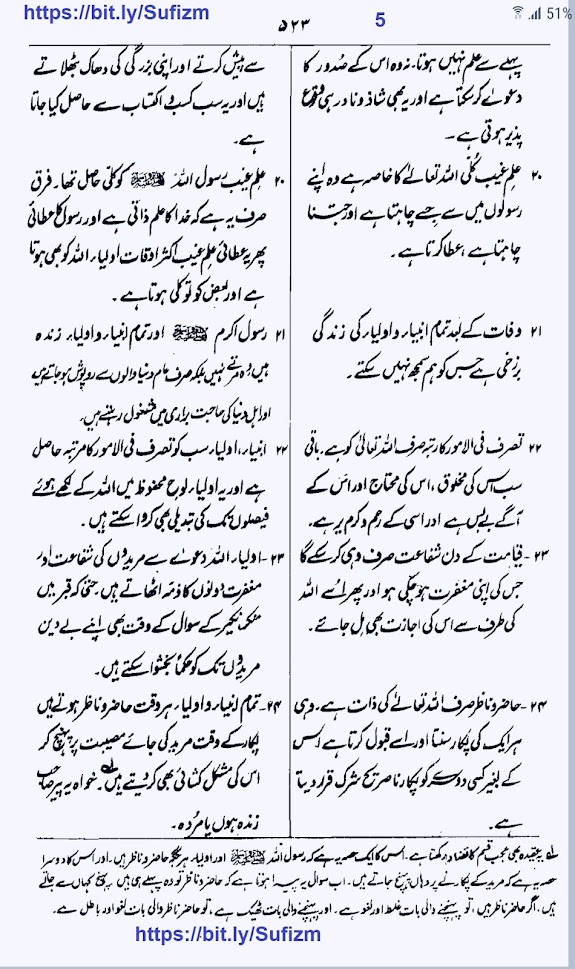 https://bit.ly/Sufizm
51%
۵۲۳
5
پہلے سے علم نہیں ہوتا۔ نہ وہ اس کے صدور کا
دعوےٰ کر سکتا ہے اور یہ بھی شاذ و نادر ہی وقوع
پذیر ہوتی ہے۔
۲۰ علم غیب کُلّی اللہ تعالےٰ کا خاصہ ہے وہ اپنے
رسولوں میں سے جسے چاہتا ہے اور جتنا
چاہتا ہے، عطا کرتا ہے۔
۲۱ وفات کے بعد تمام انبیاء و اولیاء کی زندگی
برزخی ہے جس کو ہم سمجھ نہیں سکتے۔
۲۲ تصرف فی الامور کا رتبہ صرف اللہ تعالیٰ کو ہے۔ باقی
سب اس کی مخلوق، اس کی محتاج اور اس کے
آگے بے بس ہے اور اسی کے رحم و کرم پر ہے۔
۲۳۔ قیامت کے دن شفاعت صرف وہی کر سکے گا
جس کی اپنی مغفرت ہو چکی ہو اور پھر اُسے اللہ
کی طرف سے اس کی اجازت بھی مل جائے۔
۲۴۔ حاضر و ناظر صرف اللہ تعالےٰ کی ذات ہے۔ وہی
ہر ایک کی پکار سنتا اور اسے قبول کرتا ہے اس
کے بغیر کسی دوسرے کو پکارنا صریح شرک قرار دیتا
ہے۔
سے پیش کرتے اور اپنی بزرگی کی دھاک بٹھلاتے
ہیں اور یہ سب کسب و اکتساب سے حاصل کیا جاتا
ہے۔
۲۰ علم غیب رسول اللہ ﷺ کو کلّی حاصل تھا۔ فرق
صرف یہ ہے کہ خدا کا علم ذاتی ہے اور رسول کا عطائی
پھر یہ عطائی علم غیب اکثر اوقات اولیاء اللہ کو بھی ہوتا
ہے اور بعض کو تو کلی ہوتا ہے۔
۲۱ رسول اکرم ﷺ اور تمام انبیاء و اولیاء زندہ
ہیں وہ مرتے نہیں بلکہ صرف عام دنیا والوں سے روپوش ہو جاتے ہیں
اور اہل دنیا کی حاجت براری میں مشغول رہتے ہیں۔
۲۲ انبیاء، اولیاء سب کو تصرف فی الامور کا مرتبہ حاصل
ہے اور یہ اولیاء لوح محفوظ میں اللہ کے لکھے ہوئے
فیصلوں تک کی تبدیلی بھی کروا سکتے ہیں۔
۲۳۔ اولیاء اللہ دعوے سے مریدوں کی شفاعت اور
مغفرت دونوں کا ذمہ اٹھاتے ہیں حتیٰ کہ قبر میں
منکر نکیر کے سوال کے وقت بھی اپنے بے دین
مریدوں تک کو حکماً بخشوا سکتے ہیں۔
۲۴۔ تمام انبیاء و اولیاء ہر وقت حاضر و ناظر ہوتے ہیں
پکار کے وقت مرید کی جائے مصیبت پر پہنچ کر
اس کی مشکل کشائی بھی کر دیتے ہیں۔ خواہ یہ پیر صاحب
زندہ ہوں یا مردہ۔
لہ یہ عقیدہ بھی عجیب قسم کا تضاد رکھتا ہے۔ اس کا ایک حصہ یہ ہے کہ رسول اللہ ﷺ اور اولیاء ہر جگہ حاضر و ناظر ہیں۔ اور اس کا دوسرا
حصہ یہ ہے کہ مرید کے پکارنے پر وہاں پہنچ جاتے ہیں۔ اب سوال یہ پیدا ہوتا ہے کہ حاضر و ناظر تو وہ پہلے ہی ہیں پہنچ کہاں سے جاتے
ہیں۔ اگر حاضر ناظر ہیں، تو پہنچنے والی بات غلط اور لغو ہے۔ اور پہنچنے والی بات ٹھیک ہے، تو حاضر ناظر والی بات لغو اور باطل ہے۔
https://bit.ly/Sufizm